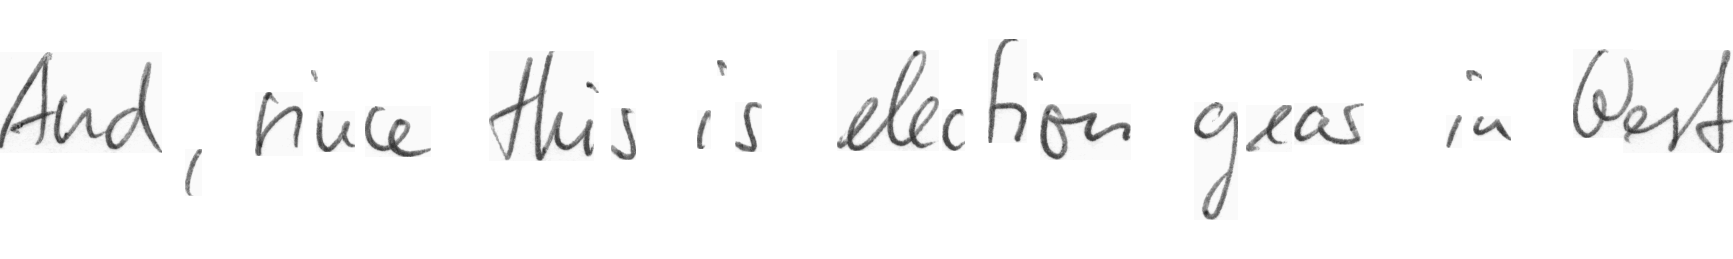 And, since this is election year in West